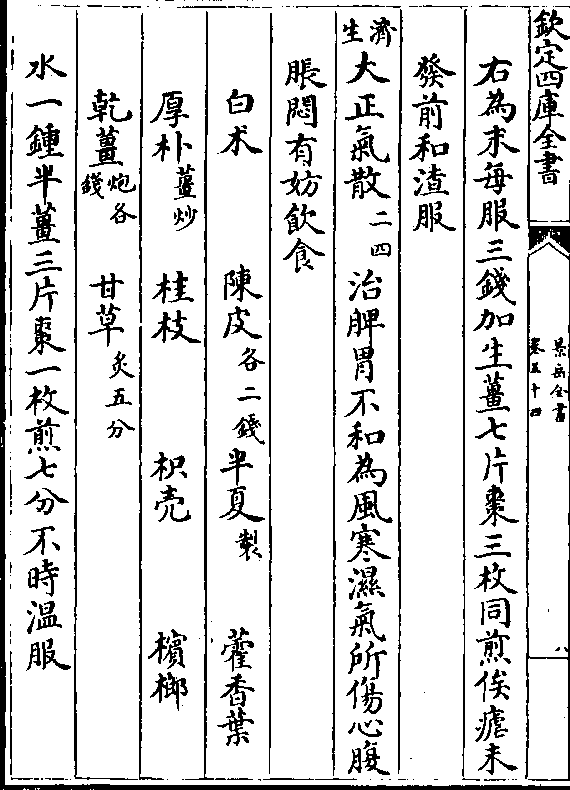 欽定四庫全書
景岳全書
卷五十四
八
右為末每服三錢加生薑七片棗三枚同煎俟瘧未
發前和渣服
濟生大正氣散二四治脾胃不和為風寒濕氣所傷心腹
脹悶有妨飲食
白术 陳皮各二錢 半夏製 藿香葉
厚朴薑炒 桂枝 枳壳 檳榔
乾薑炮各錢 甘草炙五分
水一鍾半薑三片棗一枚煎七分不時温服